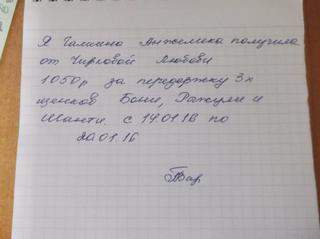 Я Галкина Анжелика получила
от Чирковой Любови
1050р за передержку 3х
щенков Бони, Ражули и
Шанти. с 14.01.16 по
20.01.16